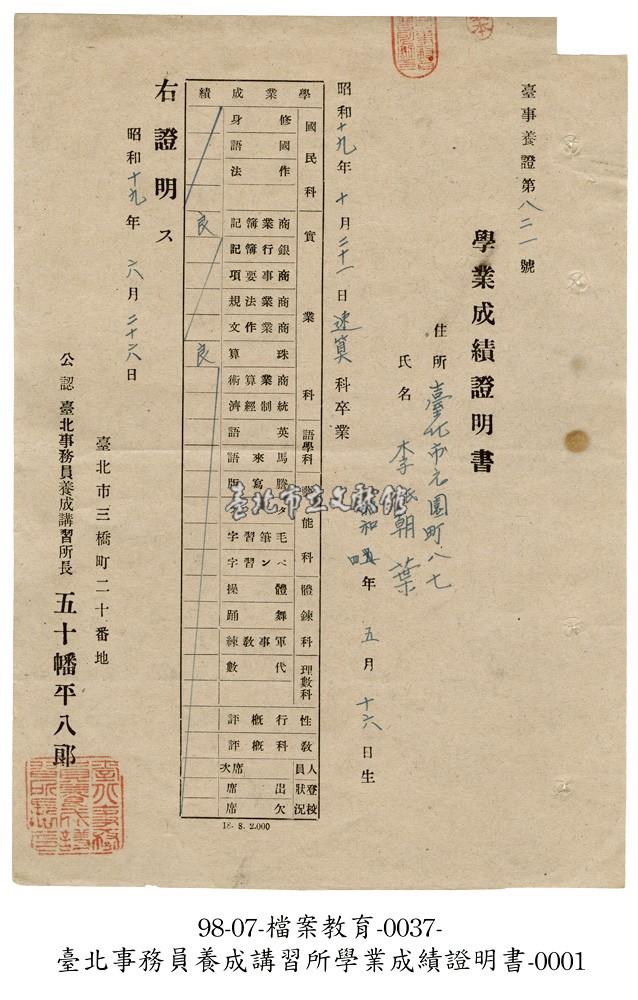 臺事養證第八二一號
學業成績證明書
住所 臺北市元園町八七
氏名 李 朝葉
昭和 年 五月 十六日生
昭和十九年 十月 二十一日 速算 科卒業
學業成績
國民科
修身
國語
作法
實業科
商業簿記 良
銀行簿記
商事要項
商業法規
商業作文
珠算 良
商業算術
統制經濟
語學科
英語
馬來語
能科
謄寫版
毛筆習字
ペン習字
體鍊科
體操
舞踊
軍事教練
理數科
代數
性行概評
教科概評
人員 席次
登校狀況 出席
欠席
18. 8. 2.000
右證明ス
昭和十九年 六月 二十六日
臺北市三橋町二十番地
公認 臺北事務員養成講習所長 五十幡平八郎
臺北市立文獻館
98-07-檔案教育-0037-
臺北事務員養成講習所學業成績證明書-0001